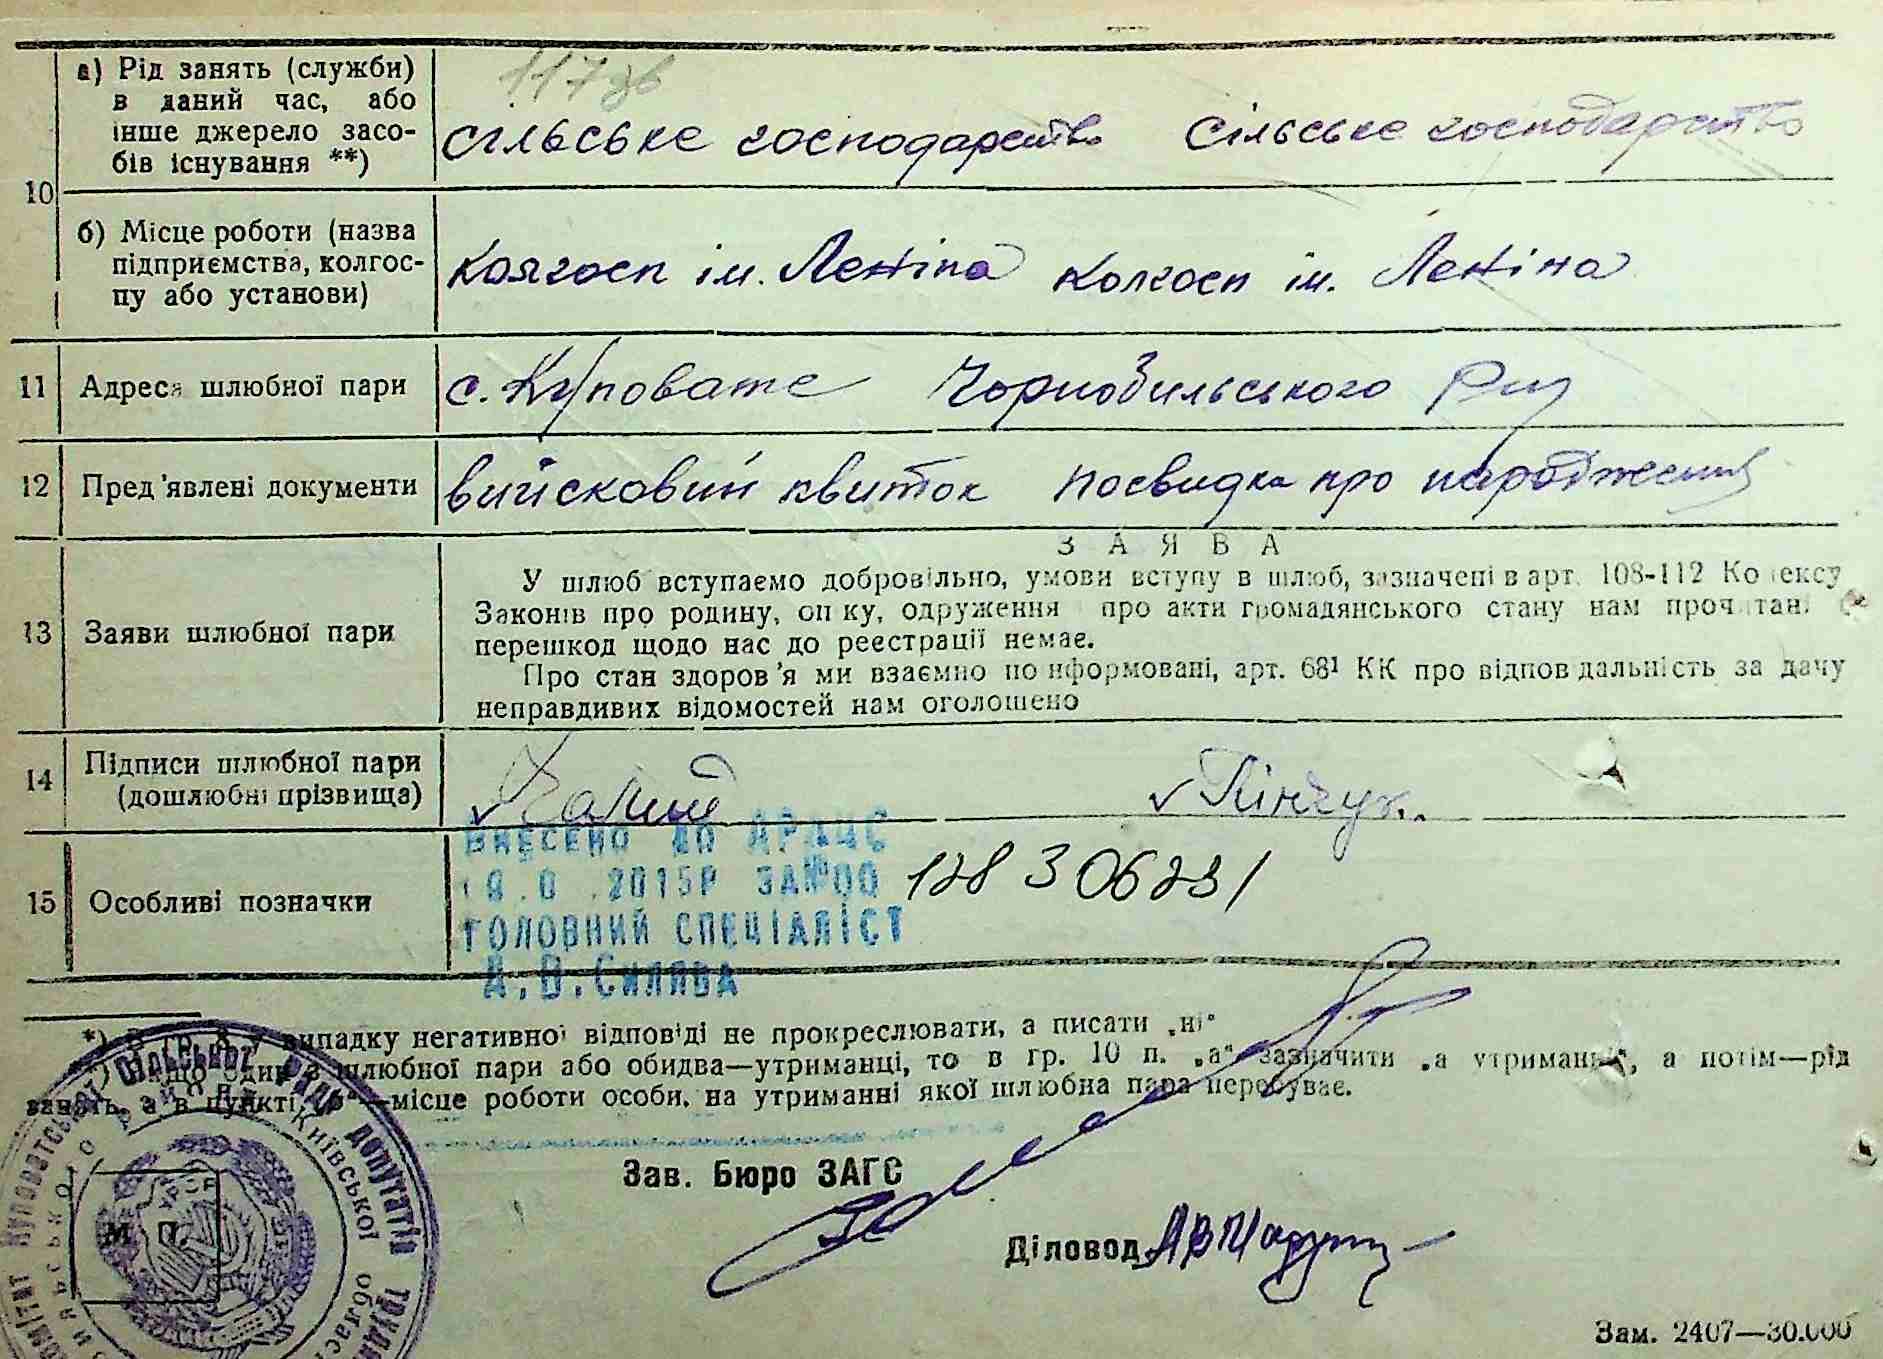 117зв
10
а) Рід занять (служби)
в даний час, або
інше джерело засо-
бів існування **)
сільське господарство сільське господарство
б) Місце роботи (назва
підприємства, колгос-
пу або установи)
Колгосп ім. Леніна Колгосп ім. Леніна
11 Адреса шлюбної пари
с. Куповате Чорнобильського р-ну
12 Пред'явлені документи
військовий квиток посвидка про народження
13 Заяви шлюбної пари
ЗАЯВА
У шлюб вступаємо добровільно, умови вступу в шлюб, зазначені в арт. 108-112 Кодексу
Законів про родину, опіку, одруження про акти громадянського стану нам прочитані
перешкод щодо нас до реєстрації немає.
Про стан здоров'я ми взаємно поінформовані, арт. 68¹ КК про відповідальність за дачу
неправдивих відомостей нам оголошено
14 Підписи шлюбної пари
(дошлюбні прізвища)
Чалий Пінчук
15 Особливі позначки
ВНЕСЕНО ДО ДРАЦС
2015Р ЗА№00 128306231
ГОЛОВНИЙ СПЕЦІАЛІСТ
А.В.Силява
*) В гр. 8 у випадку негативної відповіді не прокреслювати, а писати „ні"
**) Якщо один з шлюбної пари або обидва—утриманці, то в гр. 10 п. „а" зазначити „а утриманні", а потім—рід
занять, а в пункті „б"—місце роботи особи, на утриманні якої шлюбна пара перебуває.
Зав. Бюро ЗАГС
Діловод
М. П.
УРСР
Куповатської сільської ради депутатів трудя
Київської област
Зам. 2407—30.000